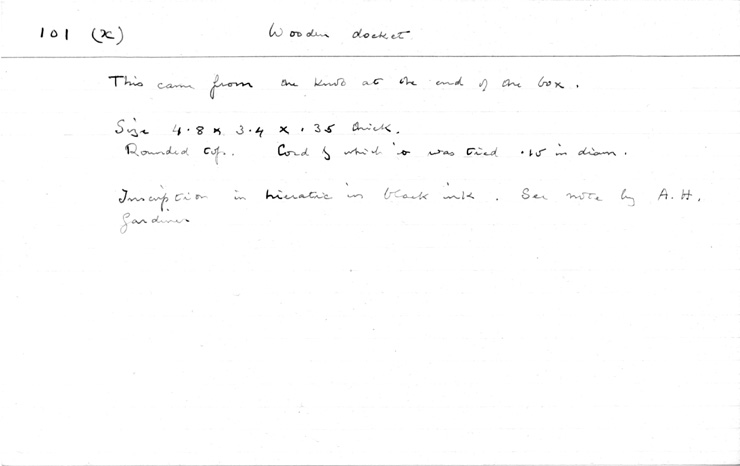 101 (x) Wooden docket
This came from the knob at the end of the box.
Size 4.8 x 3.4 x .35 thick.
Rounded top. Cord by which it was tied .15 in diam.
Inscription in hieratic in black ink. See note by A.H.
Gardiner